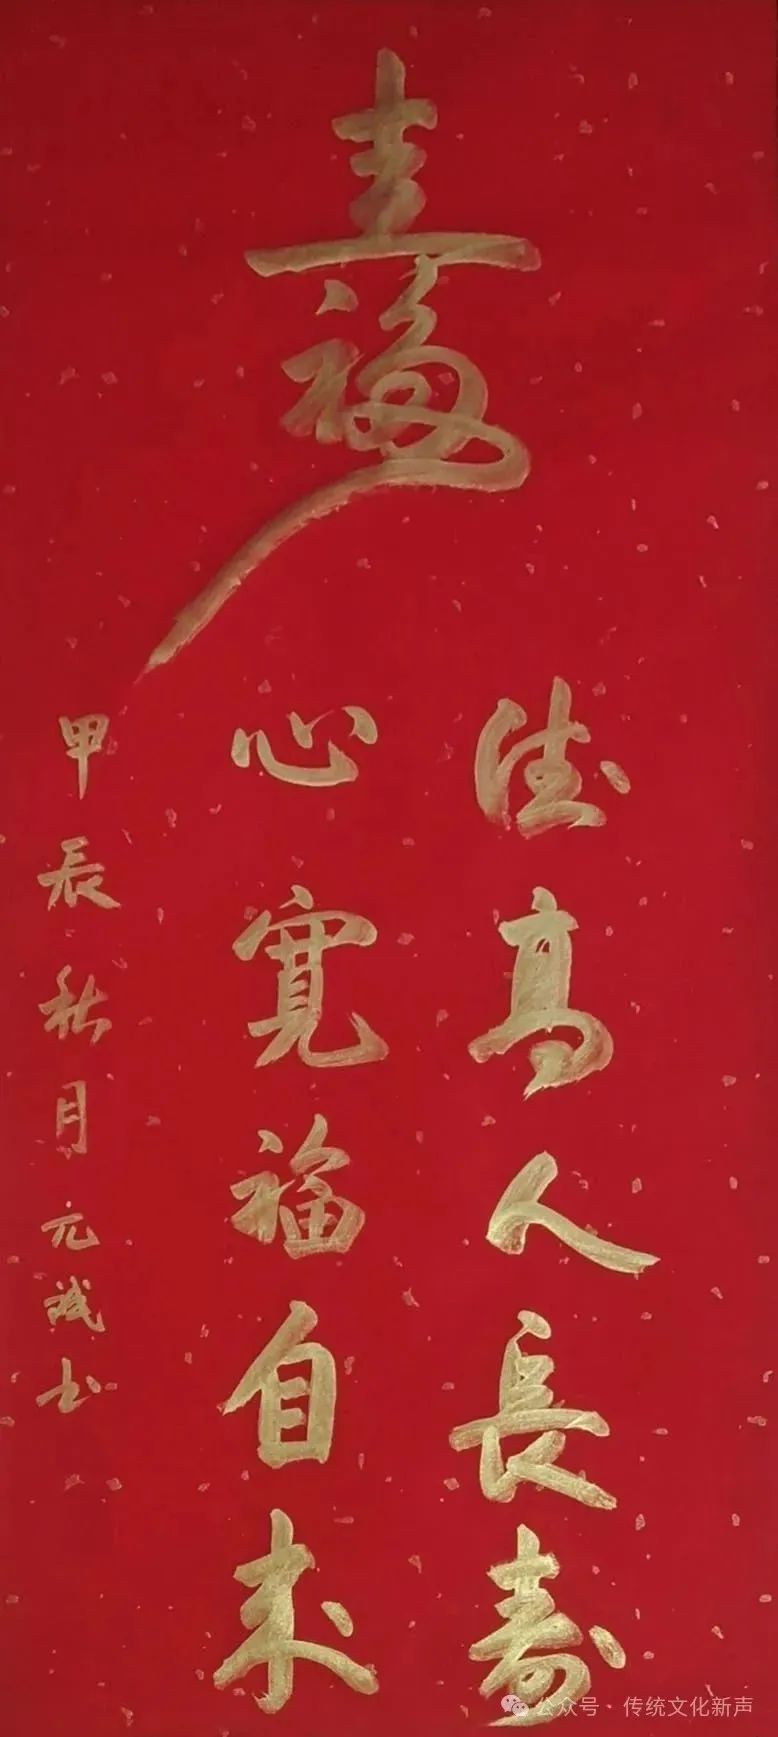 寿福
德高人長寿
心寬福自来
甲辰秋月元诚书
公众号 · 传统文化新声